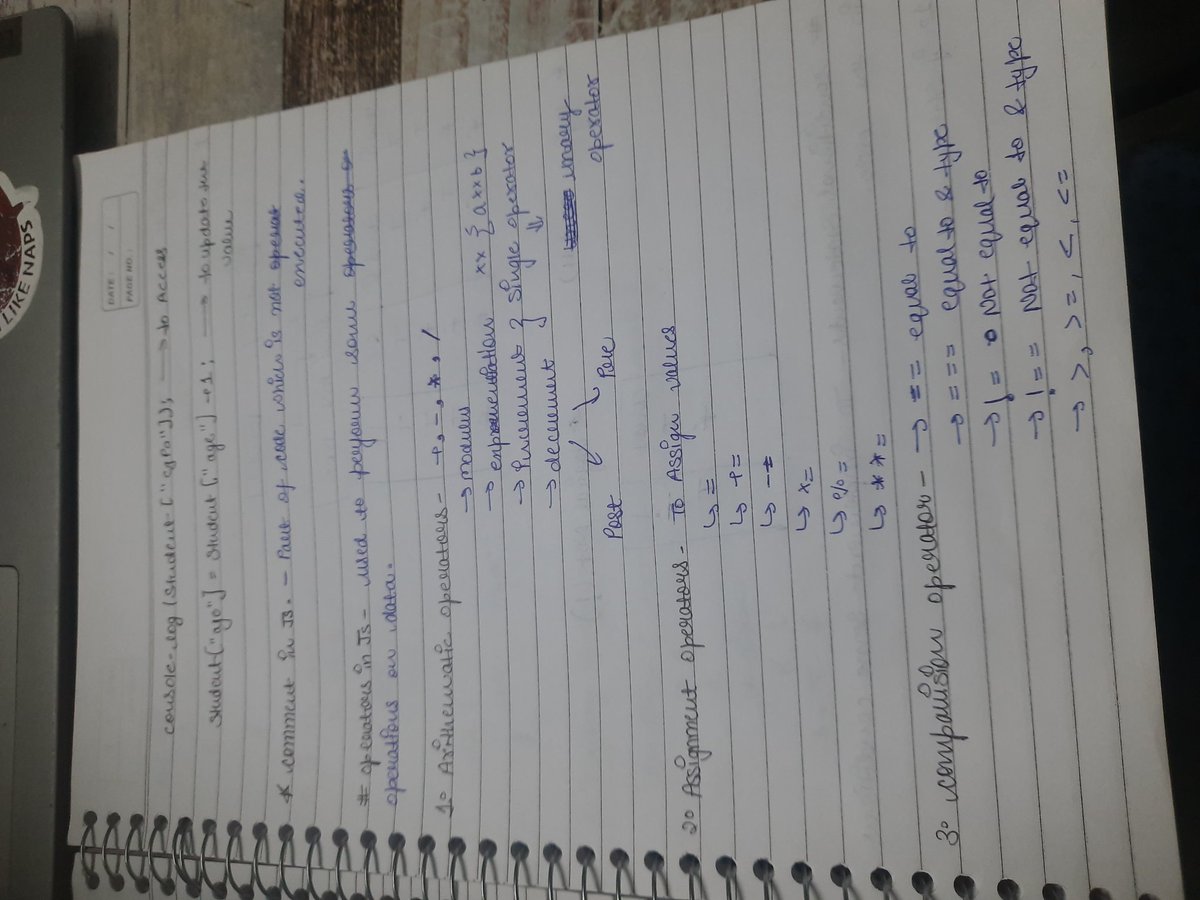 LIKE NAPS
DATE: / /
PAGE NO.:
console.log(student["cgpa"]); → to Access
student["age"] = student["age"] +1; → to update the
value
* comment in JS. - Part of code which is not operat
executed.
# operators in JS - used to perform some operators o
operations on data.
1. Arithematic operators - +, -, *, /
→ modulus
→ exponentiation ** { a**b }
→ increment } Single operator
→ decrement unary
operator
Post Pre
2. Assignment operators - To Assign values
↳ =
↳ +=
↳ -=
↳ *=
↳ %=
↳ **=
3. comparision operator - → == equal to
→ === equal to & type
→ != Not equal to
→ !== Not equal to & type
→ >, >=, <, <=